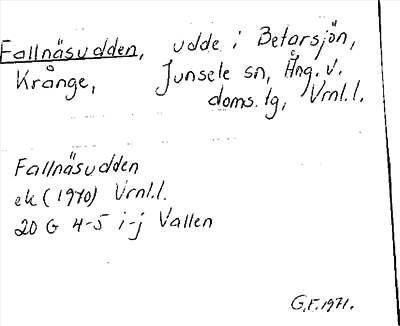 Fallnäsudden, udde i Betarsjön,
Krånge, Junsele sn, Ång. v.
doms. tg, Vrnl.l.
Fallnäsudden
ek (1970) Vrnl.l.
20 G 4-5 i-j Vallen
G.F. 1971.